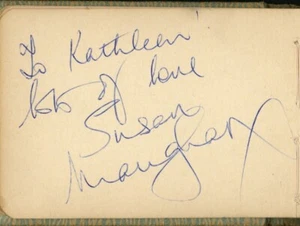 To Kathleen
lots of love
Susan
Maughan x